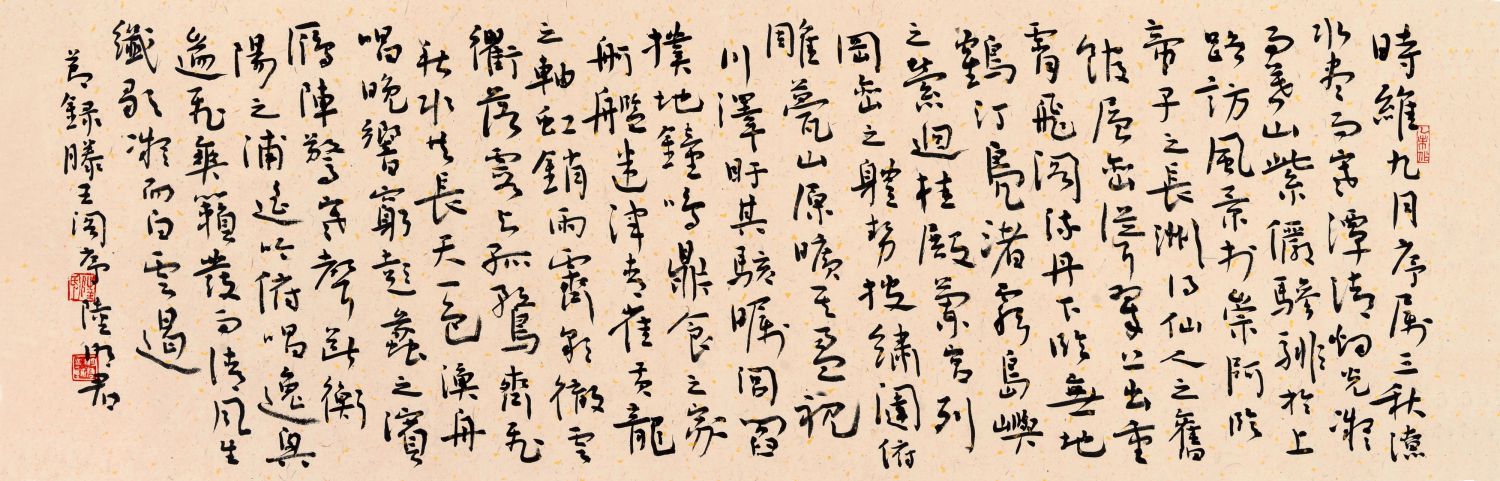 時維九月序属三秋潦
水尽而寒潭清烟光凝
而暮山紫儼驂騑於上
路訪風景於崇阿臨
帝子之長洲得仙人之舊
館層巒聳翠上出重
霄飛閣流丹下臨無地
鶴汀鳧渚窮島嶼
之縈迴桂殿蘭宮列
岡巒之體勢披繡闥俯
雕甍山原曠其盈視
川澤盱其駭矚閭閻
撲地鐘鳴鼎食之家
舸艦迷津青雀黄龍
之軸虹銷雨霽彩徹雲
衢落霞与孤鶩齊飛
秋水共長天一色漁舟
唱晚響窮彭蠡之濱
雁陣驚寒聲斷衡
陽之浦遥吟俯唱逸興
遄飛爽籟發而清風生
纖歌凝而白雲遏
節録滕王閣序陸明君